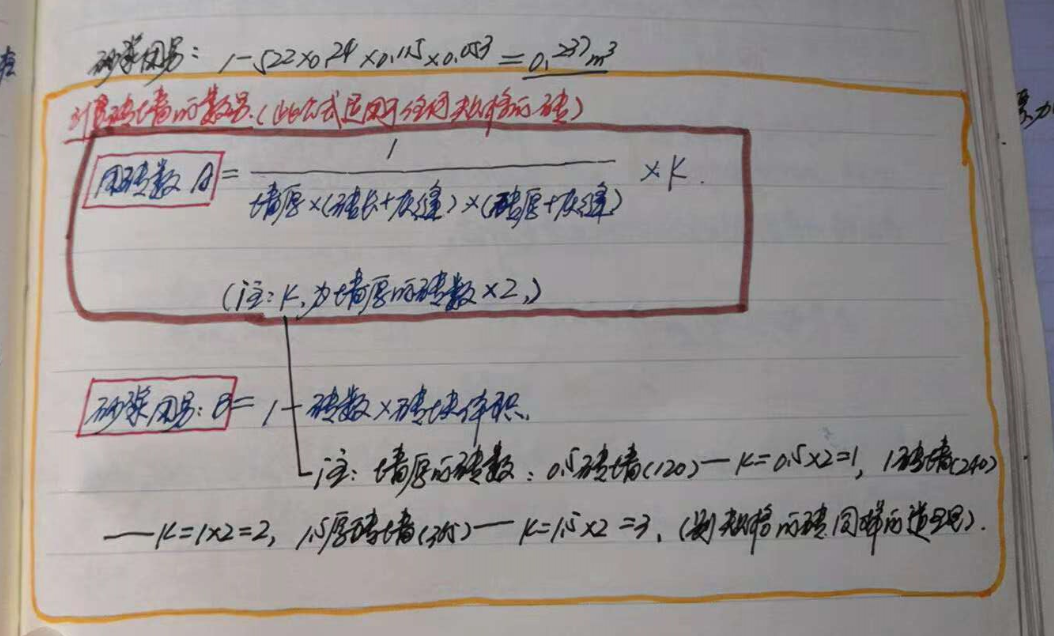 砂浆用量: 1-522×0.24×0.115×0.053=0.237m³
计算砖墙的数量.(此公式适用于任何规格的砖)
用砖数 A= 1 / 墙厚×(砖长+灰缝)×(砖厚+灰缝) ×K.
(注:K,为墙厚的砖数×2,)
砂浆用量:B=1-砖数×砖块体积.
注:墙厚的砖数:0.5砖墙(120)—K=0.5×2=1, 1砖墙(240)
—K=1×2=2, 1.5厚砖墙(365)—K=1.5×2=3, (别规格的砖同样的道理).